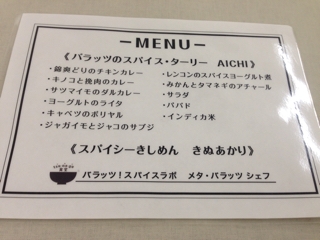 ーMENUー
《バラッツのスパイス・ターリー AICHI》
・錦爽どりのチキンカレー
・キノコと挽肉のカレー
・サツマイモのダルカレー
・ヨーグルトのライタ
・キャベツのポリヤル
・ジャガイモとジャコのサブジ
・レンコンのスパイスヨーグルト煮
・みかんとタマネギのアチャール
・サラダ
・パパド
・インディカ米
《スパイシーきしめん きぬあかり》
バラッツ！スパイスラボ メタ・バラッツ シェフ